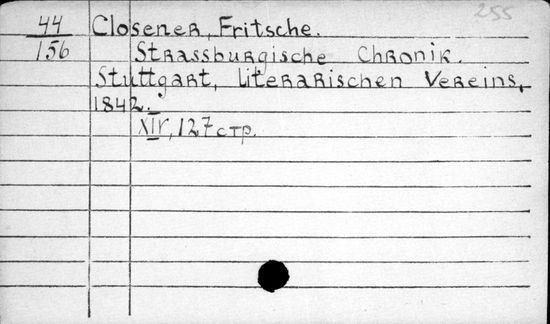 255
44 Closener, Fritsche.
156 Strassburgische Chronik.
Stuttgart, literarischen Vereins,
1842.
XIV, 127 стр.